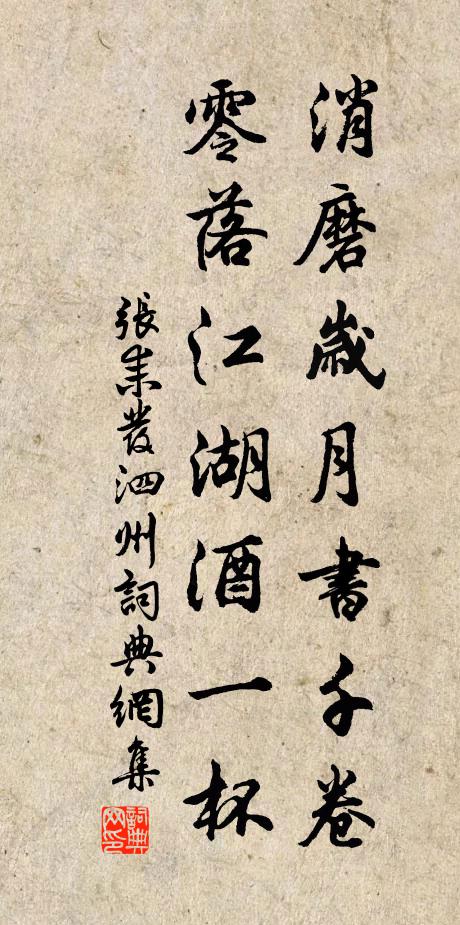 消磨歲月書千卷
零落江湖酒一杯
張耒發泗州詞典網集
詞典網印